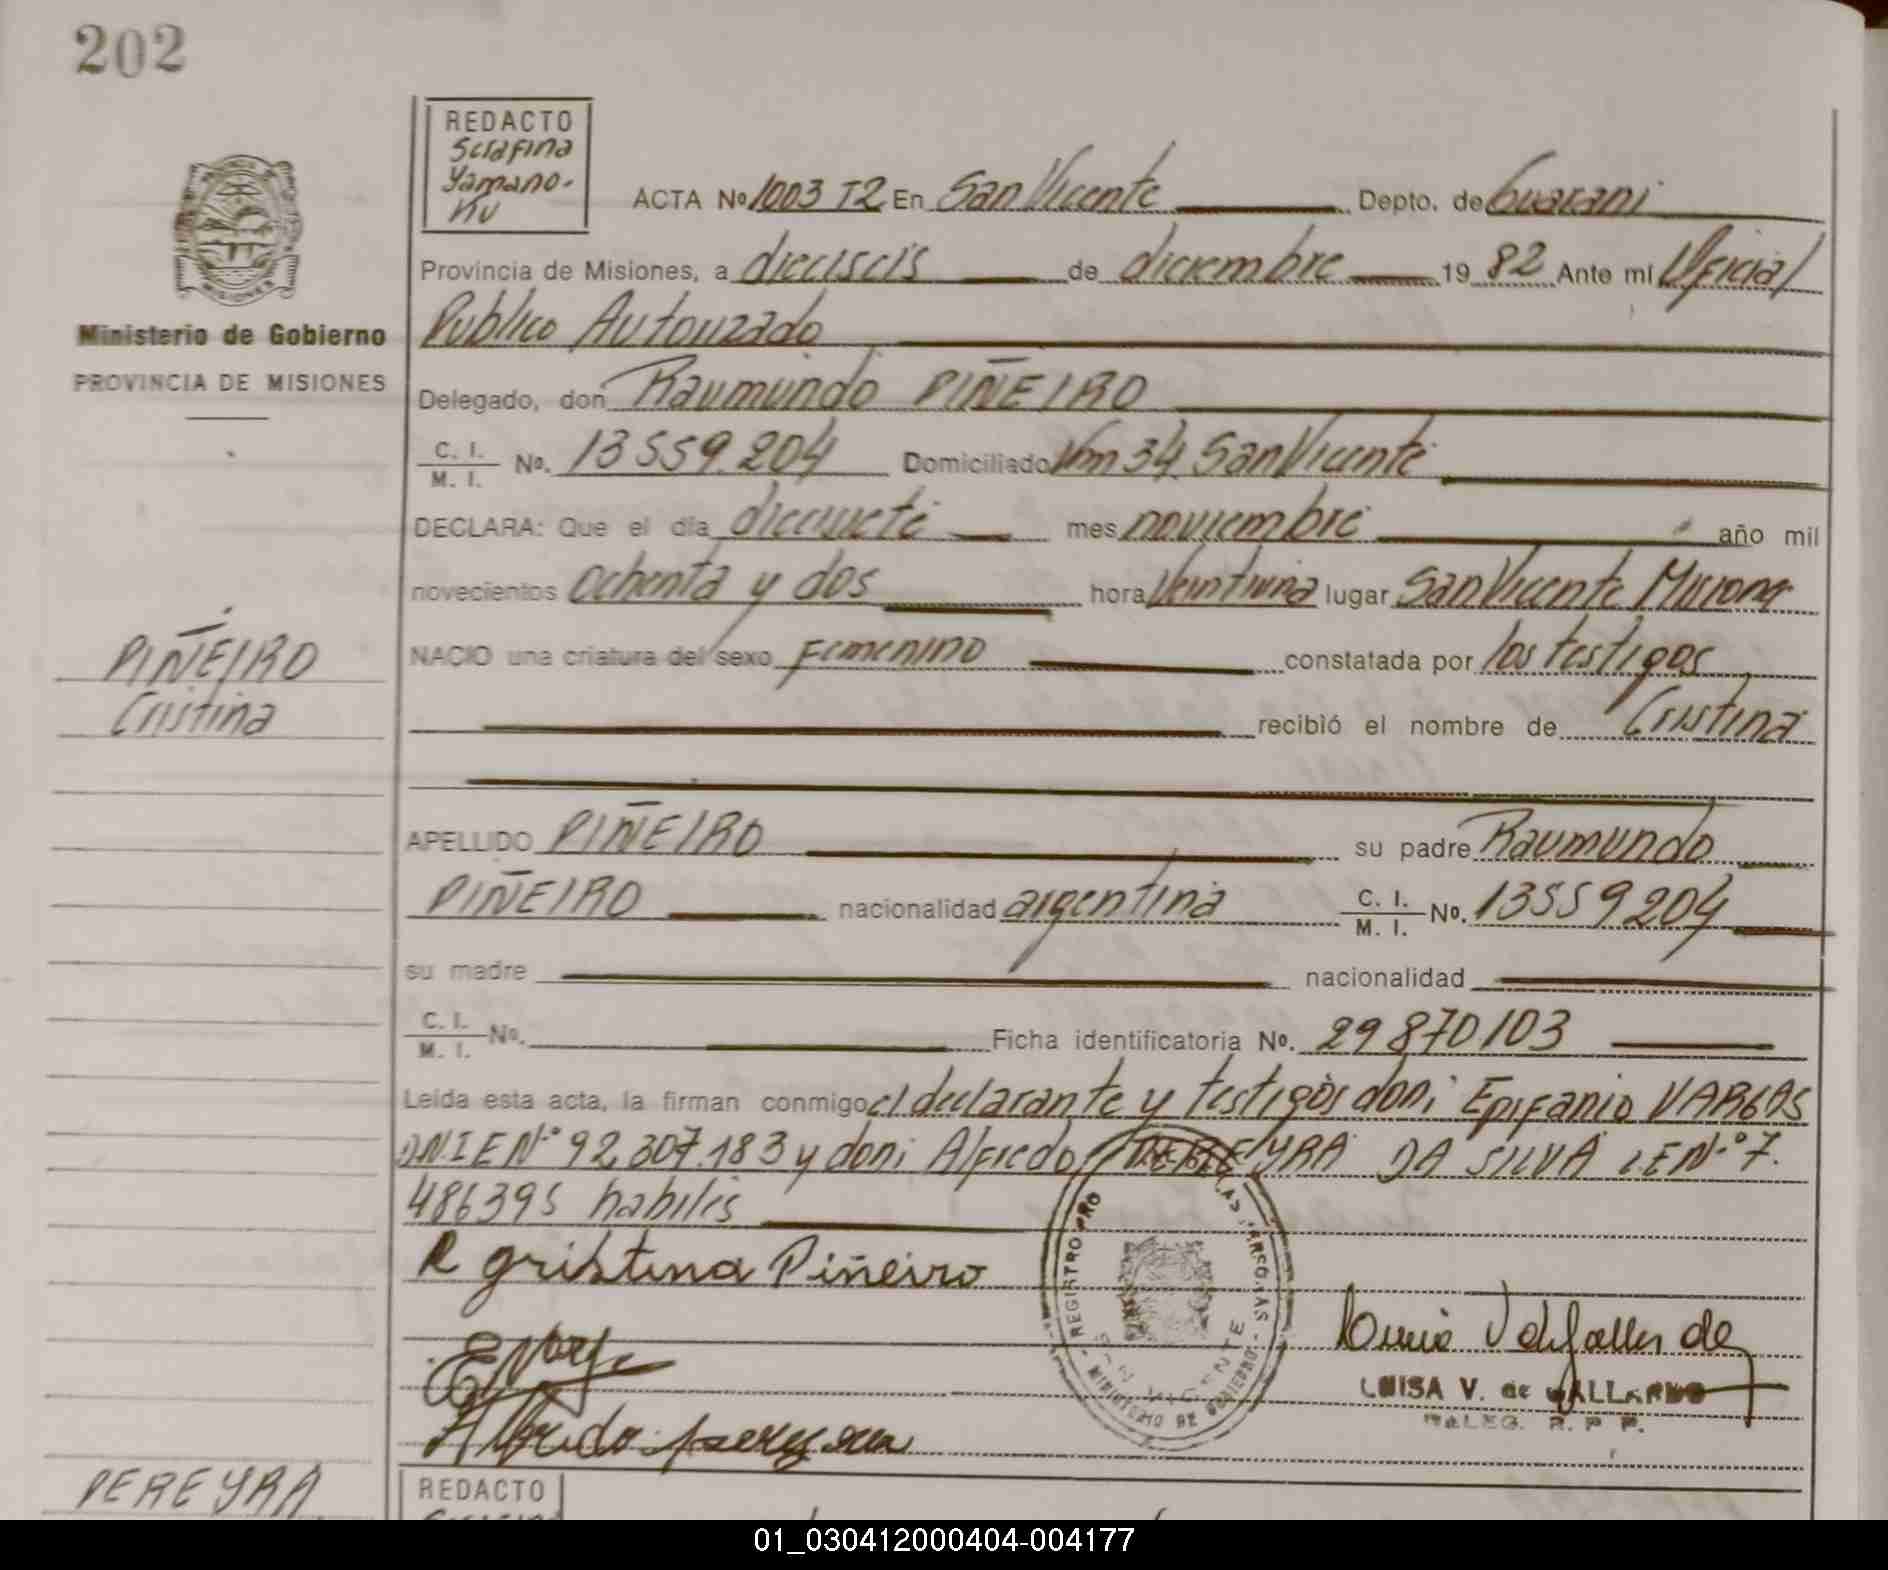 202
REDACTO
Serafina
Yamano-
ACTA Nº 1003 T2 En San Vicente Depto. de Guarani
Provincia de Misiones, a dieciseis de diciembre 19 82 Ante mi Oficial
Publico Autorizado
Ministerio de Gobierno
PROVINCIA DE MISIONES
Delegado, don Raumundo PIÑEIRO
C. I.
M. I. Nº. 13559.204 Domiciliado Km 34 San Vicente
DECLARA: Que el día diecisiete mes noviembre año mil
novecientos ochenta y dos hora veintiuna lugar San Vicente Misiones
NACIO una criatura del sexo Femenino constatada por los testigos
PIÑEIRO
Cristina
recibió el nombre de Cristina
APELLIDO PIÑEIRO su padre Raumundo
PIÑEIRO nacionalidad argentina C. I.
M. I. Nº. 13559204
su madre nacionalidad
C. I.
M. I. Nº. Ficha identificatoria Nº. 29870103
Leida esta acta, la firman conmigo el declarante y testigos don: Epifanio VARGAS
DNIE Nº 92,307.183 y don: Alfredo PEREYRA DA SILVA L.E Nº 7.
486395 habiles
R gristina Piñeiro
REGISTRO PRO
SAN VICENTE
MINISTERIO DE GOBIERNO
LUISA V. de GALLARDO
DELEG. R. P. P.
Alfredo pereyra
PEREYRA
REDACTO
01_030412000404-004177